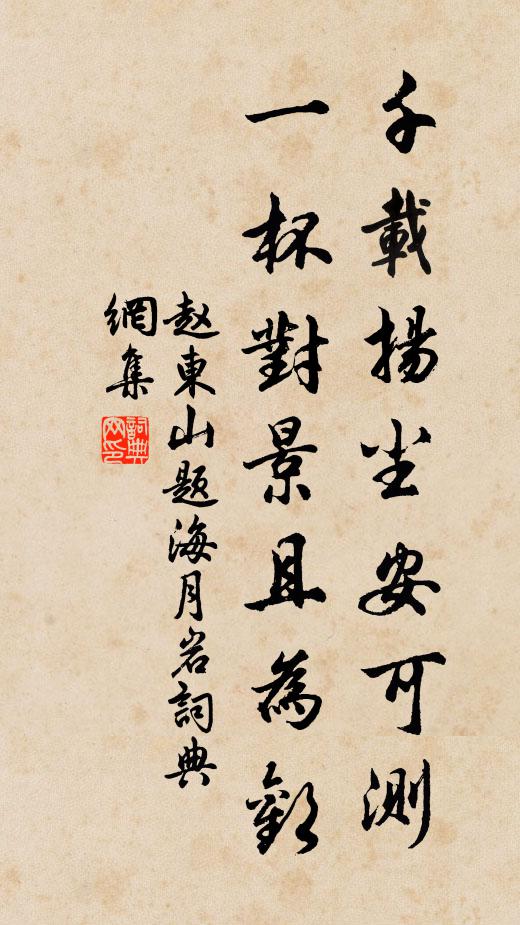 千載揚尘安可測
一杯對景且為歡
赵東山题海月岩詞典
網集
詞典网印